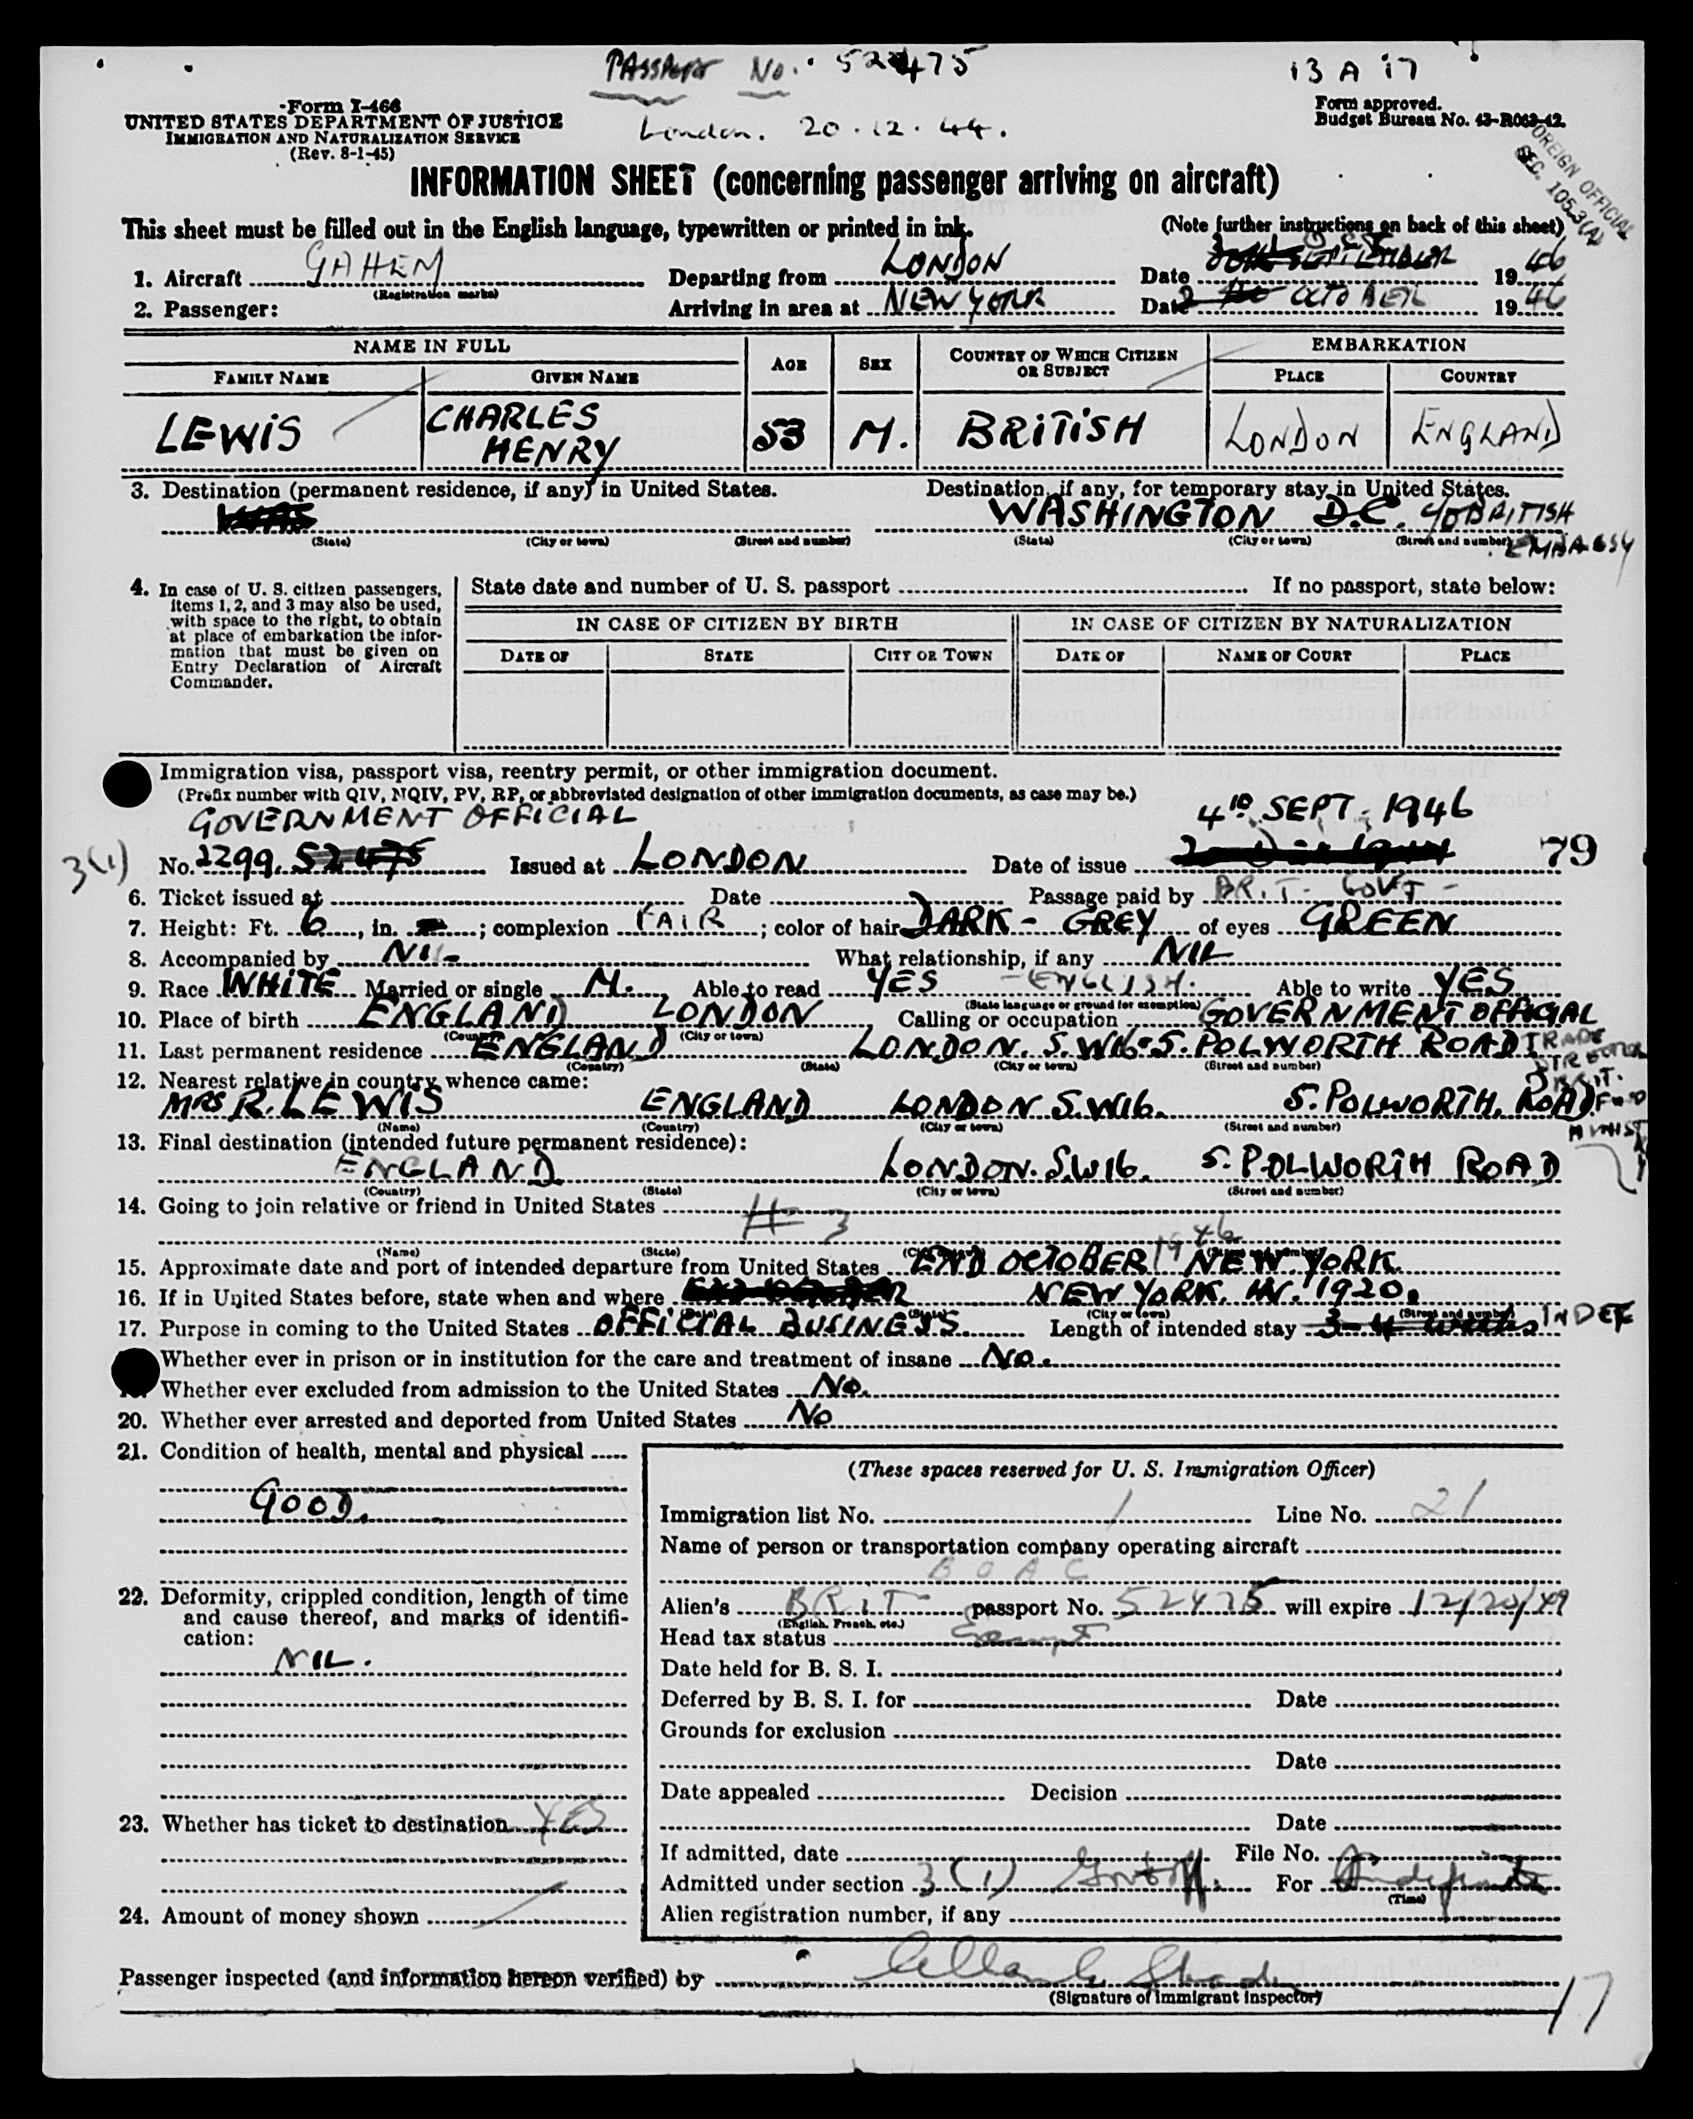 PASSPORT No. 522475
13 A 17
Form I-466
UNITED STATES DEPARTMENT OF JUSTICE
IMMIGRATION AND NATURALIZATION SERVICE
(Rev. 8-1-45)
London. 20.12.44.
Form approved.
Budget Bureau No. 43-R063-42.
FOREIGN OFFICIAL
SEC. 105.3(A)
INFORMATION SHEET (concerning passenger arriving on aircraft)
This sheet must be filled out in the English language, typewritten or printed in ink. (Note further instructions on back of this sheet)
1. Aircraft GAHEM (Registration marks) Departing from LONDON Date 1946
2. Passenger: Arriving in area at NEW YORK Date 2 OCTOBER 1946
NAME IN FULL AGE SEX COUNTRY OF WHICH CITIZEN OR SUBJECT EMBARKATION
FAMILY NAME GIVEN NAME PLACE COUNTRY
LEWIS CHARLES HENRY 53 M. BRITISH LONDON ENGLAND
3. Destination (permanent residence, if any) in United States. Destination, if any, for temporary stay in United States.
WAS WASHINGTON D.C. c/o BRITISH EMBASSY
(State) (City or town) (Street and number) (State) (City or town) (Street and number)
4. In case of U. S. citizen passengers, items 1, 2, and 3 may also be used, with space to the right, to obtain at place of embarkation the information that must be given on Entry Declaration of Aircraft Commander.
State date and number of U. S. passport If no passport, state below:
IN CASE OF CITIZEN BY BIRTH IN CASE OF CITIZEN BY NATURALIZATION
DATE OF STATE CITY OR TOWN DATE OF NAME OF COURT PLACE
Immigration visa, passport visa, reentry permit, or other immigration document.
(Prefix number with QIV, NQIV, PV, RP, or abbreviated designation of other immigration documents, as case may be.)
GOVERNMENT OFFICIAL 4th SEPT. 1946
3(1) No. 2299. 52475 Issued at LONDON Date of issue 79
6. Ticket issued at Date Passage paid by BRIT. GOVT -
7. Height: Ft. 6, in. ; complexion FAIR; color of hair DARK - GREY of eyes GREEN
8. Accompanied by NIL What relationship, if any NIL
9. Race WHITE Married or single M. Able to read YES - ENGLISH. Able to write YES
(State language or ground for exemption)
10. Place of birth ENGLAND LONDON Calling or occupation GOVERNMENT OFFICIAL
(Country) (City or town)
TRADE DIRECTOR BRIT. FOOD MINISTRY
11. Last permanent residence ENGLAND LONDON. S.W16. 5. POLWORTH ROAD
(Country) (State) (City or town) (Street and number)
12. Nearest relative in country whence came:
MRS R. LEWIS ENGLAND LONDON S.W16. 5. POLWORTH. ROAD
(Name) (Country) (City or town) (Street and number)
13. Final destination (intended future permanent residence):
ENGLAND LONDON. S.W16. 5. POLWORTH ROAD
(Country) (State) (City or town) (Street and number)
14. Going to join relative or friend in United States
H- 3
(Name) (State) (City or town) (Street and number)
15. Approximate date and port of intended departure from United States END OCTOBER 1946 NEW YORK.
16. If in United States before, state when and where NEW YORK. IN. 1920.
(Date) (State) (City or town) (Street and number)
17. Purpose in coming to the United States OFFICIAL BUSINESS Length of intended stay 3-4 weeks INDEF
Whether ever in prison or in institution for the care and treatment of insane NO.
Whether ever excluded from admission to the United States NO.
20. Whether ever arrested and deported from United States NO
21. Condition of health, mental and physical
GOOD.
22. Deformity, crippled condition, length of time and cause thereof, and marks of identification:
NIL.
23. Whether has ticket to destination YES
24. Amount of money shown
(These spaces reserved for U. S. Immigration Officer)
Immigration list No. 1 Line No. 21
Name of person or transportation company operating aircraft
B O A C
Alien's BRIT passport No. 52475 will expire 12/20/49
(English, French, etc.)
Head tax status Exempt
Date held for B. S. I.
Deferred by B. S. I. for Date
Grounds for exclusion
Date
Date appealed Decision
Date
If admitted, date File No.
Admitted under section 3(1) Govt Off. For Indefinite
(Time)
Alien registration number, if any
Passenger inspected (and information hereon verified) by
(Signature of immigrant inspector)
17